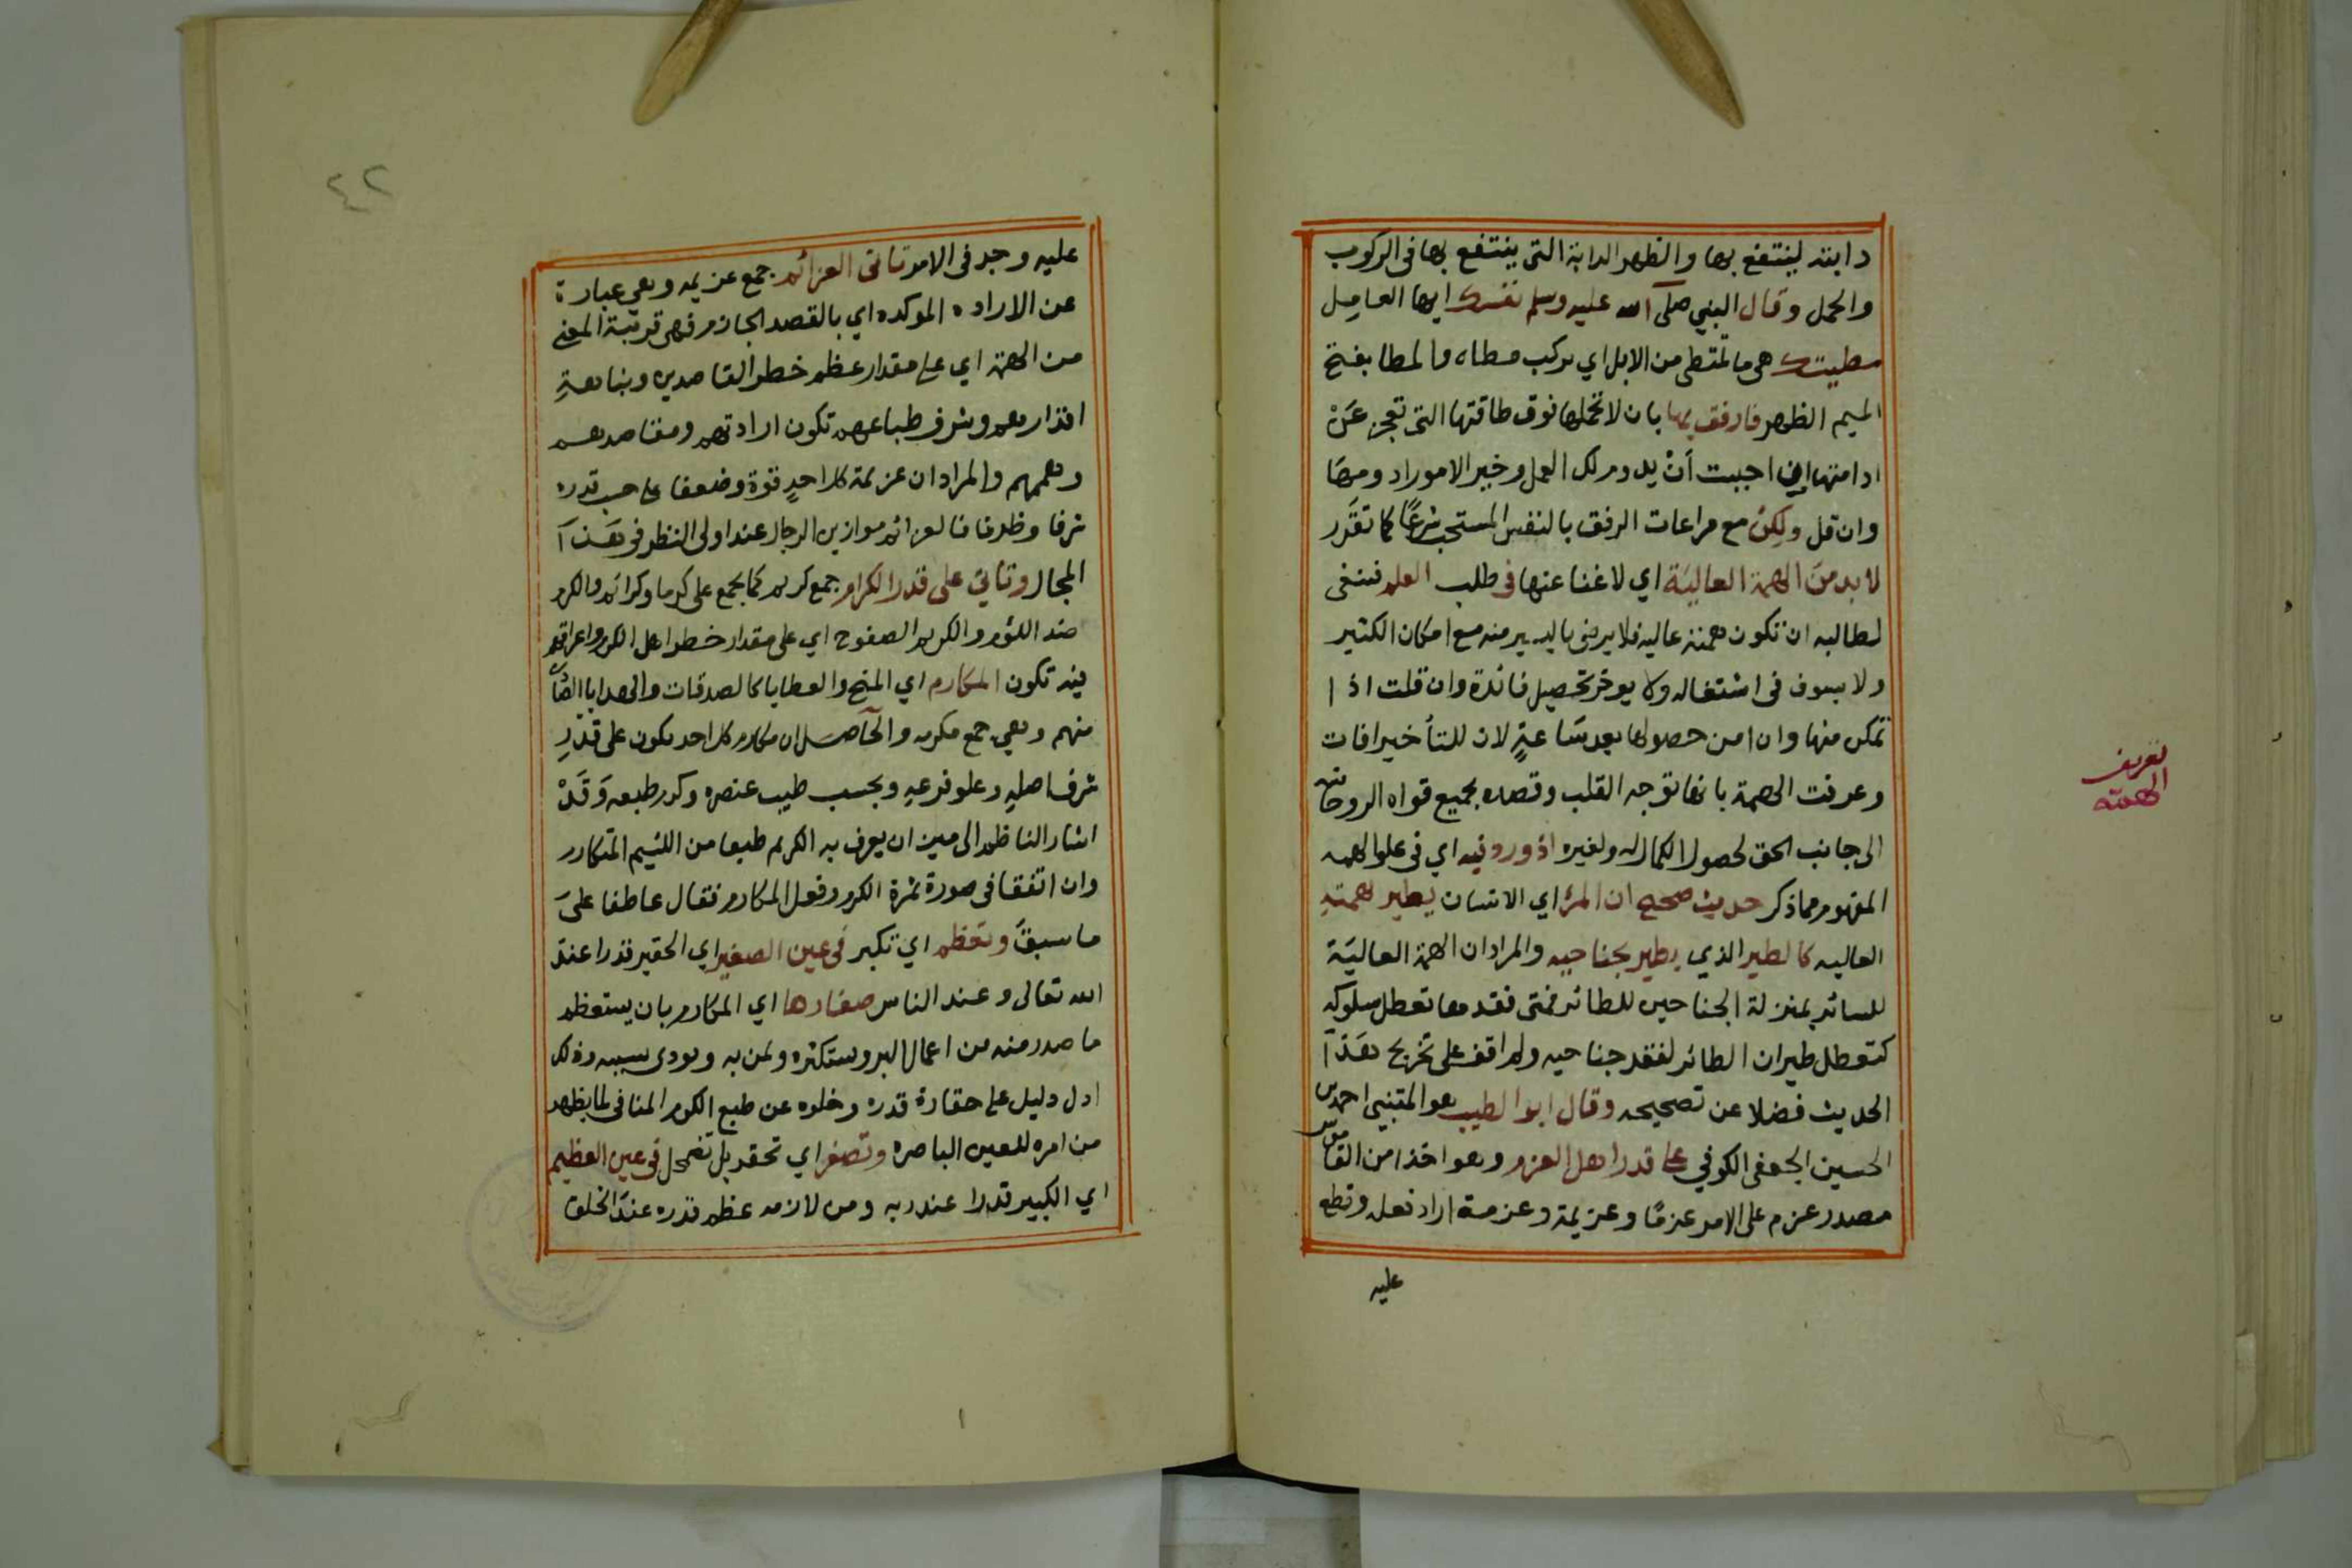 دابته لينتفع بها والظهر الدابة التي ينتفع بها في الركوب
والحمل وقال النبي صلى الله عليه وسلم نفسك ايها العامل
مطيتك هي ما تمتطى من الابل اي يركب مطاه والمطا بفتح
الميم الظهر فارفق بها بان لا تحملها فوق طاقتها التي تعجز عن
ادامتها ان اجببت أن يدوم لك العمل وخير الامور ادومها
وان قل ولكن مع مراعات الرفق بالنفس المستحب شرعًا كما تقرر
لا بد من الهمة العالية اي لا غنا عنها في طلب العلم فينبغي
لطالبه ان تكون همته عالية فلا يرضى باليسير منه مع امكان الكثير
ولا يسوف في اشتغاله ولا يوخر تحصيل فائدة وان قلت اذا
تمكن منها وان امن حصولها بعد ساعةٍ لان للتأخير افات
وعرفت الهمة بانها توجه القلب وقصده بجميع قواه الروحانيه
الى جانب الحق لحصول الكمال له ولغيره اذ ورد فيه اي في علو الهمه
المفهوم مما ذكر حديث صحيح ان المرء اي الانسان يطير بهمته
العاليه كالطير الذي يطير بجناحيه والمراد ان الهمة العالية
للسائر بمنزلة الجناحين للطائر فمتى فقدمها تعطل سلوكه
كتعطل طيران الطائر لفقد جناحيه ولم اقف على تخريج هذا
الحديث فضلا عن تصحيحه وقال ابو الطيب هو المتنبي احمد بن
الحسين الجعفي الكوفي على قدر اهل العزم وهو اخذا من القاموس
مصدر عزم على الامر عزمًا وعزيمة وعزمة اراد فعله وقطع
عليه
تعريف
الهمة
٤٢
عليه وجد في الامر تاتى العزائم جمع عزيمه وهي عبارة
عن الاراده الموكده اي بالقصد الجازم فهي قريبة المعنى
من الهمة اي على مقدار عظم خطر القاصدين ونباهةِ
اقدارهم وشرف طباعهم تكون اراداتهم ومقاصدهم
وهممهم والمراد ان عزيمة كل احدٍ قوة وضعفا على حسب قدره
شرفا وظرفا فالعزائم موازين الرجال عند اولى النظر في هذا
المجال وتاتي على قدر الكرام جمع كريم كما يجمع على كرما وكرائم والكرم
ضد اللؤم والكريم الصفوح اي على مقدار خطر اهل الكرم واعراقهم
فيه تكون المكارم اي المنح والعطايا كالصدقات والهدايا
منهم وهي جمع مكرمه والحاصل ان مكارم كل احد يكون على قدرِ
شرف اصلهِ وعلو فرعهِ وبحسب طيب عنصره وكدر طبعه وَقَدْ
اشار الناظم الى ميزان يعرف به الكريم طبعا من اللئيم المتكارم
وان اتفقا في صورة ثمرة الكرم وفعل المكارم فقال عاطفا على
ما سبق وتعظم اي تكبر في عين الصغير اي الحقير قدرا عند
الله تعالى وعند الناس صغارها اي المكارم بان يستعظم
ما صدر منه من اعمال البر ويستكثره ويمن به ويودى بسببه وذلك
ادل دليل على حقارة قدره وخلوه عن طبع الكرم المنافى لما يظهر
من امره للعين الباصرة وتصغر اي تحقر بل تضمحل في عين العظيم
اي الكبير قدرا عند ربه ومن لازمه عظم قدره عند الخلق